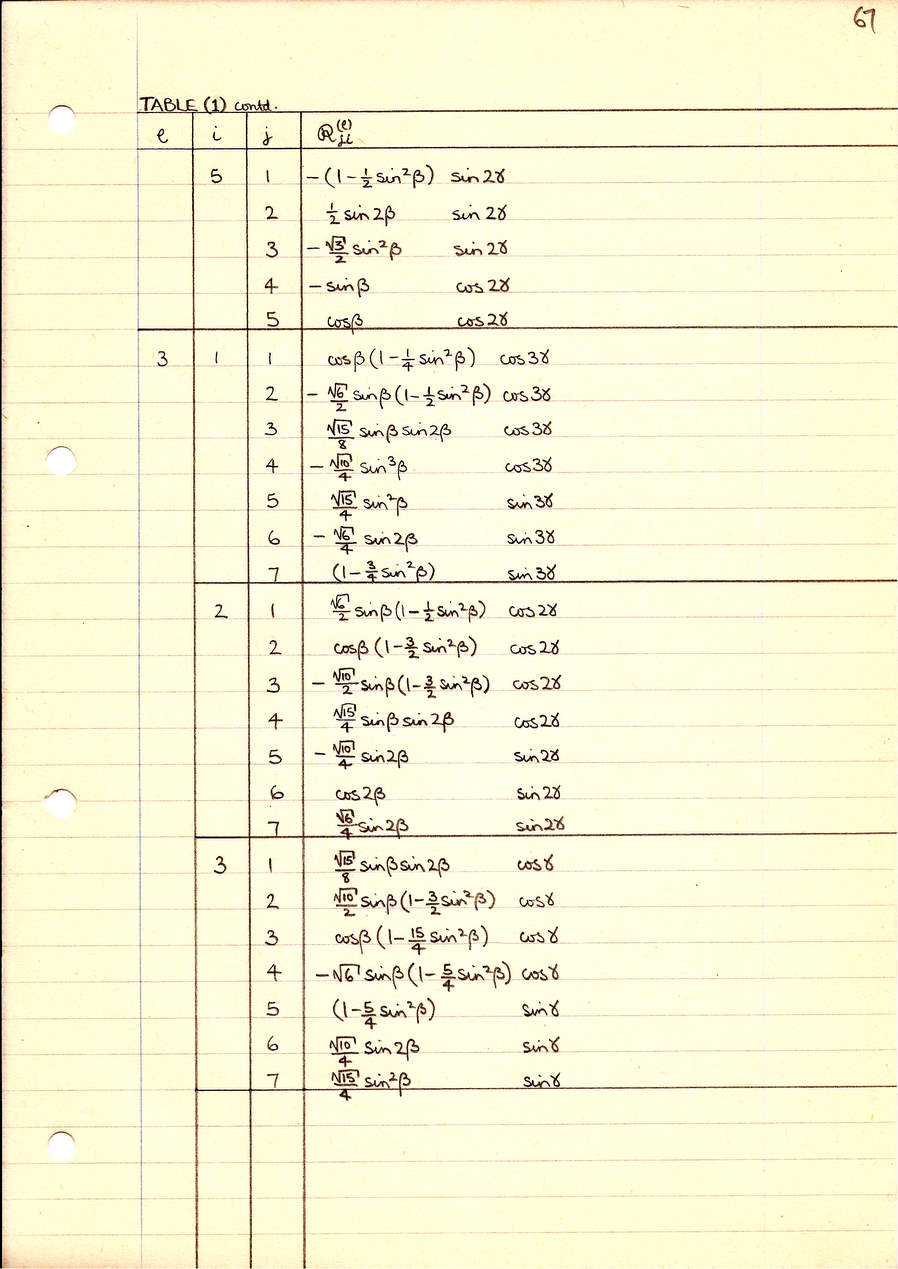 67
TABLE (1) contd.
ℓ i j ℝ_{ji}^{(ℓ)}
5 1 −(1−½ sin²β) sin2γ
2 ½ sin2β sin2γ
3 −√3/2 sin²β sin2γ
4 −sinβ cos2γ
5 cosβ cos2γ
3 1 1 cosβ(1−¼ sin²β) cos3γ
2 −√6/2 sinβ(1−½ sin²β) cos3γ
3 √15/8 sinβ sin2β cos3γ
4 −√10/4 sin³β cos3γ
5 √15/4 sin²β sin3γ
6 −√6/4 sin2β sin3γ
7 (1−¾ sin²β) sin3γ
2 1 √6/2 sinβ(1−½ sin²β) cos2γ
2 cosβ(1−3/2 sin²β) cos2γ
3 −√10/2 sinβ(1−3/2 sin²β) cos2γ
4 √15/4 sinβ sin2β cos2γ
5 −√10/4 sin2β sin2γ
6 cos2β sin2γ
7 √6/4 sin2β sin2γ
3 1 √15/8 sinβ sin2β cosγ
2 √10/2 sinβ(1−3/2 sin²β) cosγ
3 cosβ(1−15/4 sin²β) cosγ
4 −√6 sinβ(1−5/4 sin²β) cosγ
5 (1−5/4 sin²β) sinγ
6 √10/4 sin2β sinγ
7 √15/4 sin²β sinγ